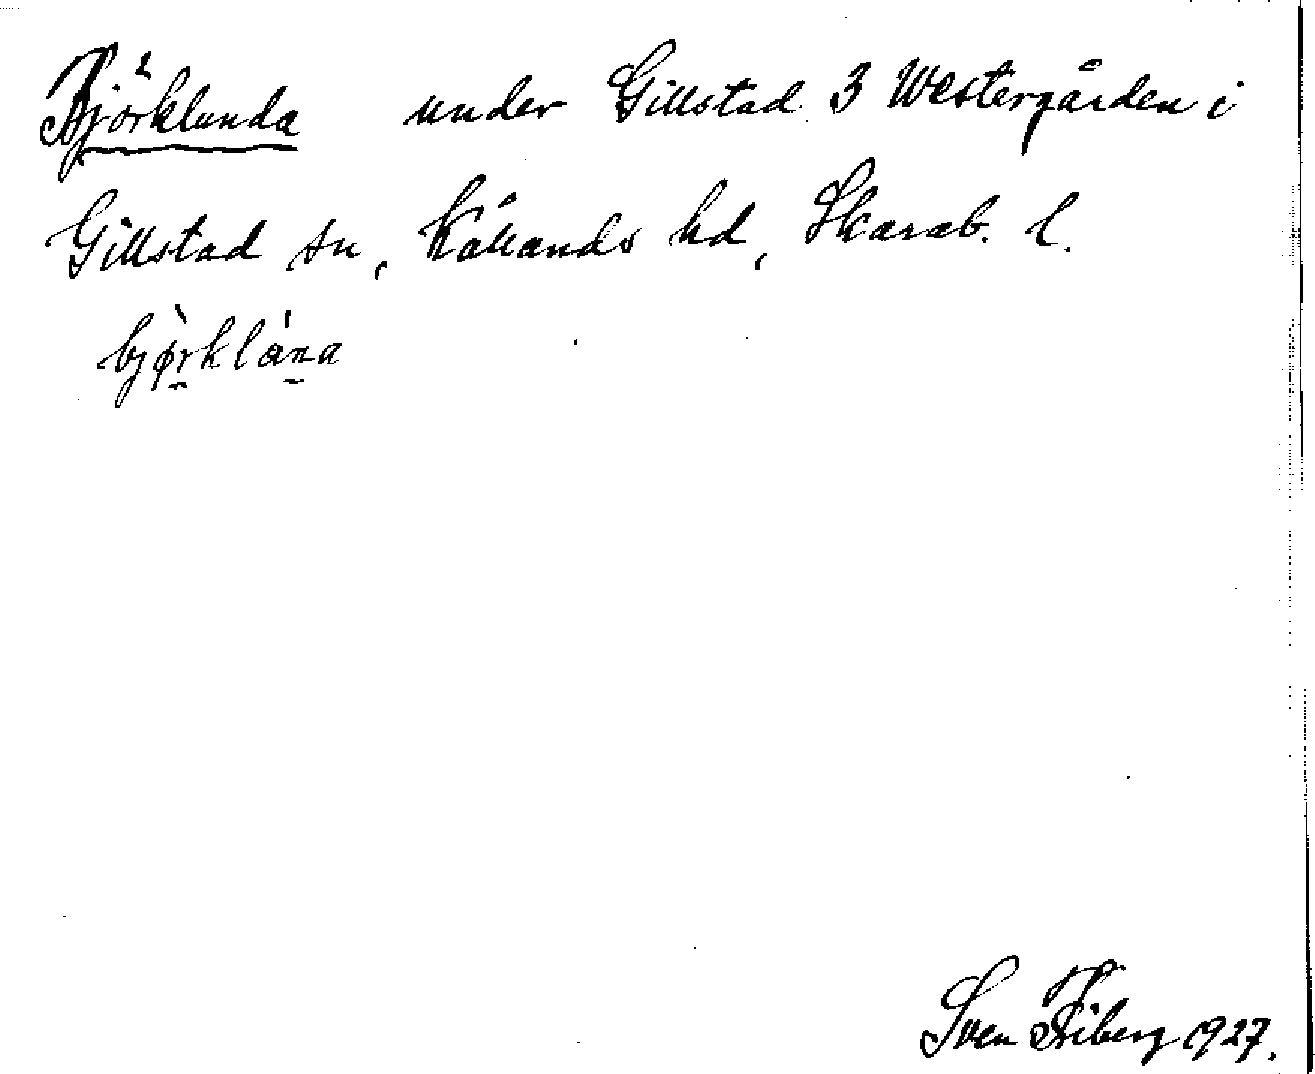 Björklunda under Gillstad 3 Westergården i
Gillstad sn, Kållands hd, Skarab. l.
bjø̀rklána
Sven Friberg 1927.